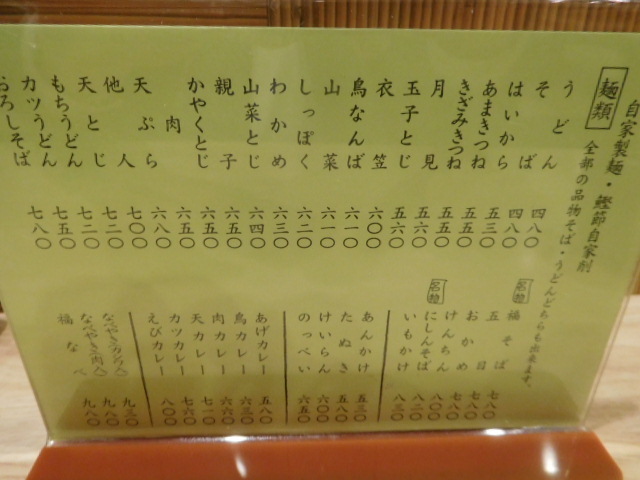 自家製麺・鰹節自家削
麺類 全部の品物そば・うどんどちらも出来ます。
うどん 四八〇
そば 四八〇
はいから 五三〇
あまきつね 五五〇
きざみきつね 五五〇
月見 五六〇
玉子とじ 五六〇
衣笠 六〇〇
鳥なんば 六一〇
山菜 六一〇
しっぽく 六二〇
わかめ 六三〇
山菜とじ 六四〇
親子 六五〇
かやくとじ 六五〇
肉 六五〇
天ぷら 六八〇
他人 七〇〇
天とじ 七二〇
もちうどん 七二〇
カツうどん 七五〇
おろしそば 七八〇
名物 福そば 七八〇
五目 七八〇
おかめ 七八〇
けんちん 八〇〇
名物 にしんそば 八二〇
いもかけ 八三〇
あんかけ 五三〇
たぬき 五八〇
けいらん 六〇〇
のっぺい 六五〇
あげカレー 五八〇
鳥カレー 六三〇
肉カレー 六六〇
天カレー 七一〇
カツカレー 七六〇
えびカレー 八〇〇
なべやき(カシワ入) 九三〇
なべやき(肉入) 九八〇
福なべ 九八〇